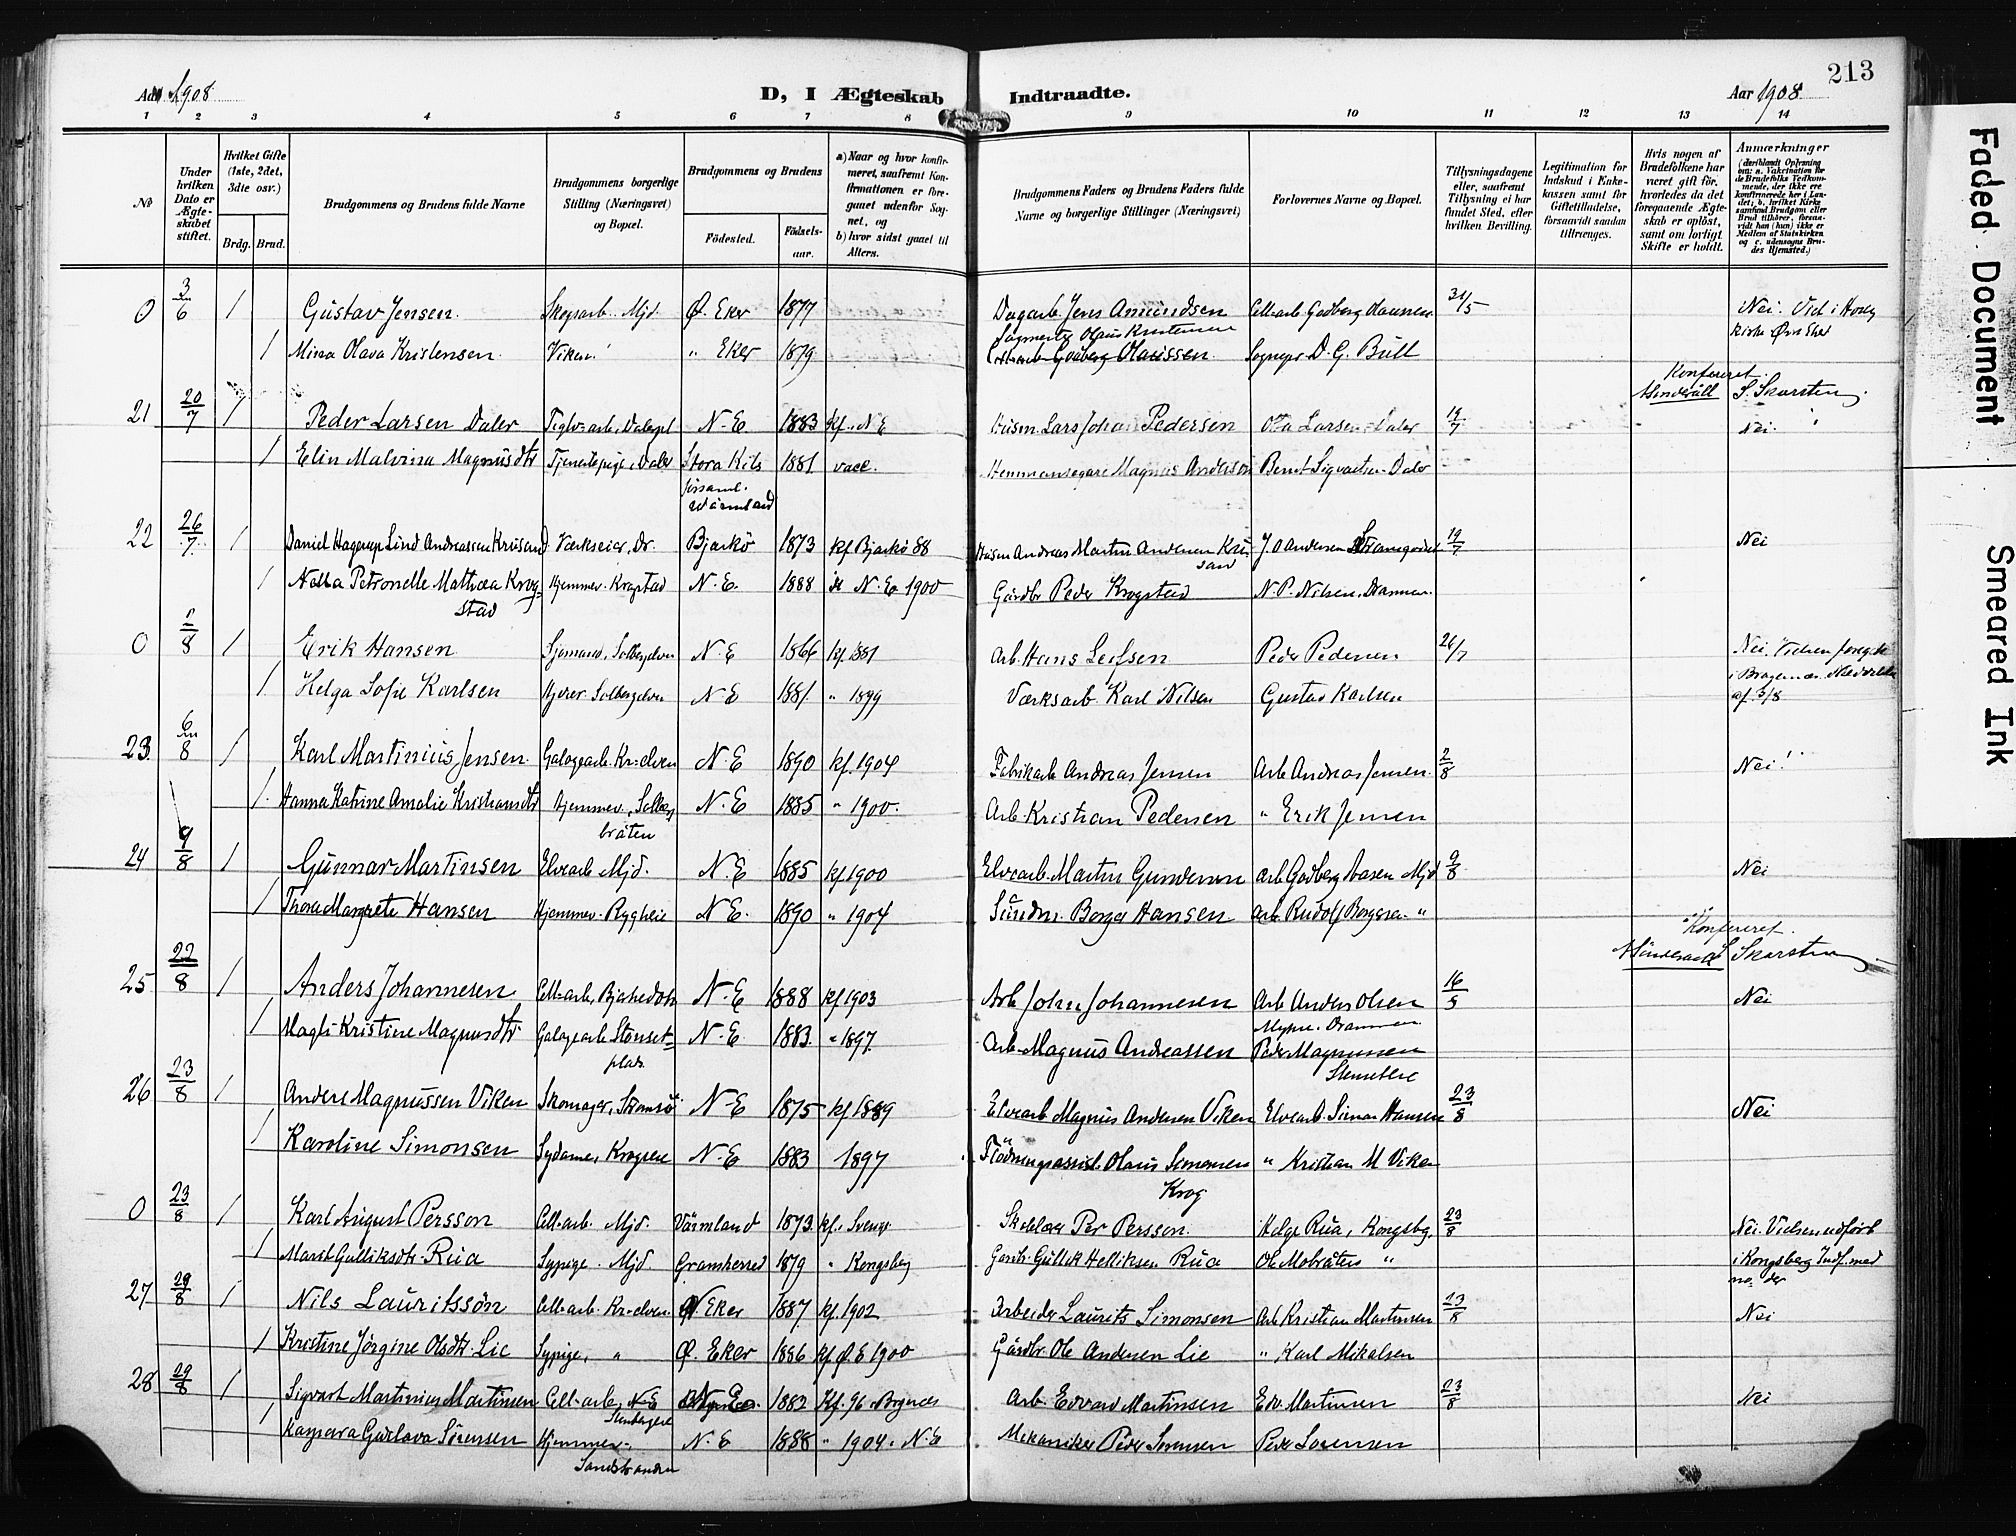 Aar 1908
D, I Ægteskab Indtraadte.
Aar 1908.
213
1 2 3 4 5 6 7 8 9 10 11 12 13 14
No
Under hvilken Dato er Ægteskabet stiftet.
Hvilket Gifte (1ste, 2det, 3die osv.)
Brdg. Brud.
Brudgommens og Brudens fulde Navne
Brudgommens borgerlige Stilling (Næringsvei) og Bopæl.
Brudgommens og Brudens
Fødested. Fødselsaar.
a) Naar og hvor konfirmeret, saafremt Konfirmationen er foregaaet udenfor Sognet, og
b) hvor sidst gaaet til Alters.
Brudgommens Faders og Brudens Faders fulde Navne og borgerlige Stillinger (Næringsvei)
Forlovernes Navne og Bopæl.
Tillysningsdagene eller, saafremt Tillysning ei har fundet Sted, efter hvilken Bevilling.
Legitimation for Indskud i Enkekassen samt for Giftetilladelse, forsaavidt saadan tiltrænges.
Hvis nogen af Brudefolkene har været gift før, hvorledes da det foregaaende Ægteskab er opløst, samt om lovligt Skifte er holdt.
Anmærkninger
0 3/6 1 Gustav Jensen. Skogsarb. Mjd. Ø. Eker 1877 Dagarb. Jens Amundsen Cell.arb. Gudberg Olaussen 31/5 Nei. Vid i Houg
kirke Øvre Eker
1 Mina Olava Kristensen Viken " Eker 1879 Olaus Kristensen Sognepr D. G. Bull
Konfereret.
S. Skarsten
21 20/7 1 Peder Larsen Daler Teglv.arb. N-E 1883 kf. N E Husm. Lars Johan Pedersen Ola Larsen Daler 19/7 Nei.
1 Elin Malvina Magnusdtr Tjenestepige, Daler Stora Kils 1881 vacc. Hemmansegare Magnus Anderson Bernt Sigvartsen Daler
församl.
Wärmland
22 26/7 1 Daniel Hagerup Lund Andreassen Krüsand Værkseier, Dr. Bjarkö 1873 kf Bjarkö 88 Husm Andreas Martin Andersen Krü- J. O Andersen 19/7 Nei
sand
1 Nella Petronelle Mathea Krog- Hjemmev. Krogstad N-E. 1888 N-E 1900 Gårdbr Peder Krogstad N. P. Nilsen, Drammen.
stad
0 2/8 1 Erik Hansen Sjømand, Solbergelven N-E 1866 kf. 1881 Arb. Hans Leifsen Peder Pedersen 26/7 Nei. Vielsen foregik
i Bragernes. Meddelelse
1 Helga Sofie Karlsen Solbergelven N E 1881 " 1899 Værksarb. Karl Nilsen Gustav Karlsen af 3/8
23. 6/8 1 Karl Martinius Jensen. Galogearb. Kr-elven N-E 1890 kf. 1904 Fabrikarb Andreas Jensen Arb Andreas Jensen. 2/8 Nei!
1 Hanna Katrine Amalie Kristiansdtr Hjemmev, Solberg N-E 1885 " 1900. Arb. Kristian Pedersen " Erik Jensen
bråten
24 9/8 1 Gunnar Martinsen Elvearb Mjd. N-E 1885 kf 1900 Elvearb. Martin Gundersen Arb Gudberg Ivasen Mjd 9/8 Nei
1 Thora Margrete Hansen Hjemmev. Ryghkis N-E. 1890 " 1904 Borger Hansen Arb Rudolf Borgesen "
Konfereret.
Skarsten
25 22/8 1 Anders Johannesen Cell-arb, N-E 1888 kf 1903 Arb John Johannesen Arb Anders Olsen 16/5 Nei
Drammen
1 Magli Kristine Magnusdtr Galogearb Stenset- N-E 1883 " 1897 Arb. Magnus Andreassen Peder Magnussen
plads. Stensetre
26 23/8 1 Anders Magnussen Viken Skomager, Strømsø N-E 1875 kf 1889 Elvearb Magnus Andersen Viken Elvearb Simon Hansen 23/8 Nei
1 Karoline Simonsen Sydame, N-E 1883 1897 Flödningsassist. Olaus Simonsen " Kristian M Viken
Krog
0 23/8 1 Karl August Persson Cell-arb. Mjd. Värmland 1873 kf. Sverige Per Persson. Helge Rua, Kongsbg. 23/8 Nei. Vielsen udført
1 Marit Gulliksdtr Rua Sypige. Mjd Gransherred 1879 " Kongsberg Gardb. Gullik Helliksen Rua Ole Mobråten " i Kongsberg Indf. med
no. der
27 29/8 1 Nils Lauritssøn Cell-arb. Kr-elven N Eker 1887 kf. 1902 Arbeider Laurits Simonsen Arb Kristian Martinsen 23/8 Nei
1 Kristine Jørgine Olsdtr. Lie Sypige, " Ø. Eker 1886 kf Ø. E 1900 Gårdbr. Ole Andersen Lie " Karl Mikalsen
28 29/8 1 Sigvart Martinius Martinsen Cell-arb, N-E N-E. 1882 Kf. 96 Brgnes Arb. Edvard Martinsen Edv. Martinsen 23/8 Nei
1 Kaspara Gustava Sørensen Hjemmev. N-E 1888 " 1904. N-E Mekaniker Peder Sørensen Peder Sørensen
Sandstranden
Faded Document
Smeared Ink